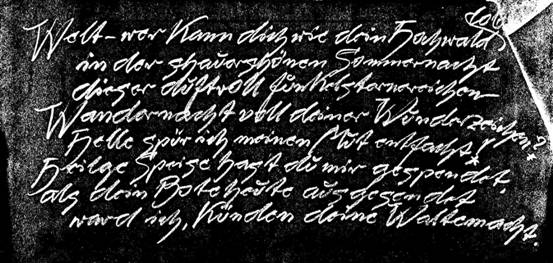 Welt – wer kann dich wie dein Hochwald
in der schauerschönen Sommernacht
dieser duftvoll funkelsternereichen
Wandernacht voll deiner Wunderzeichen?
Helle spür ich meinen Mut entfacht,
Heilge Speise hast du mir gespendet,
als dein Bote heute ausgesendet
ward ich, künden deine Waltemacht.